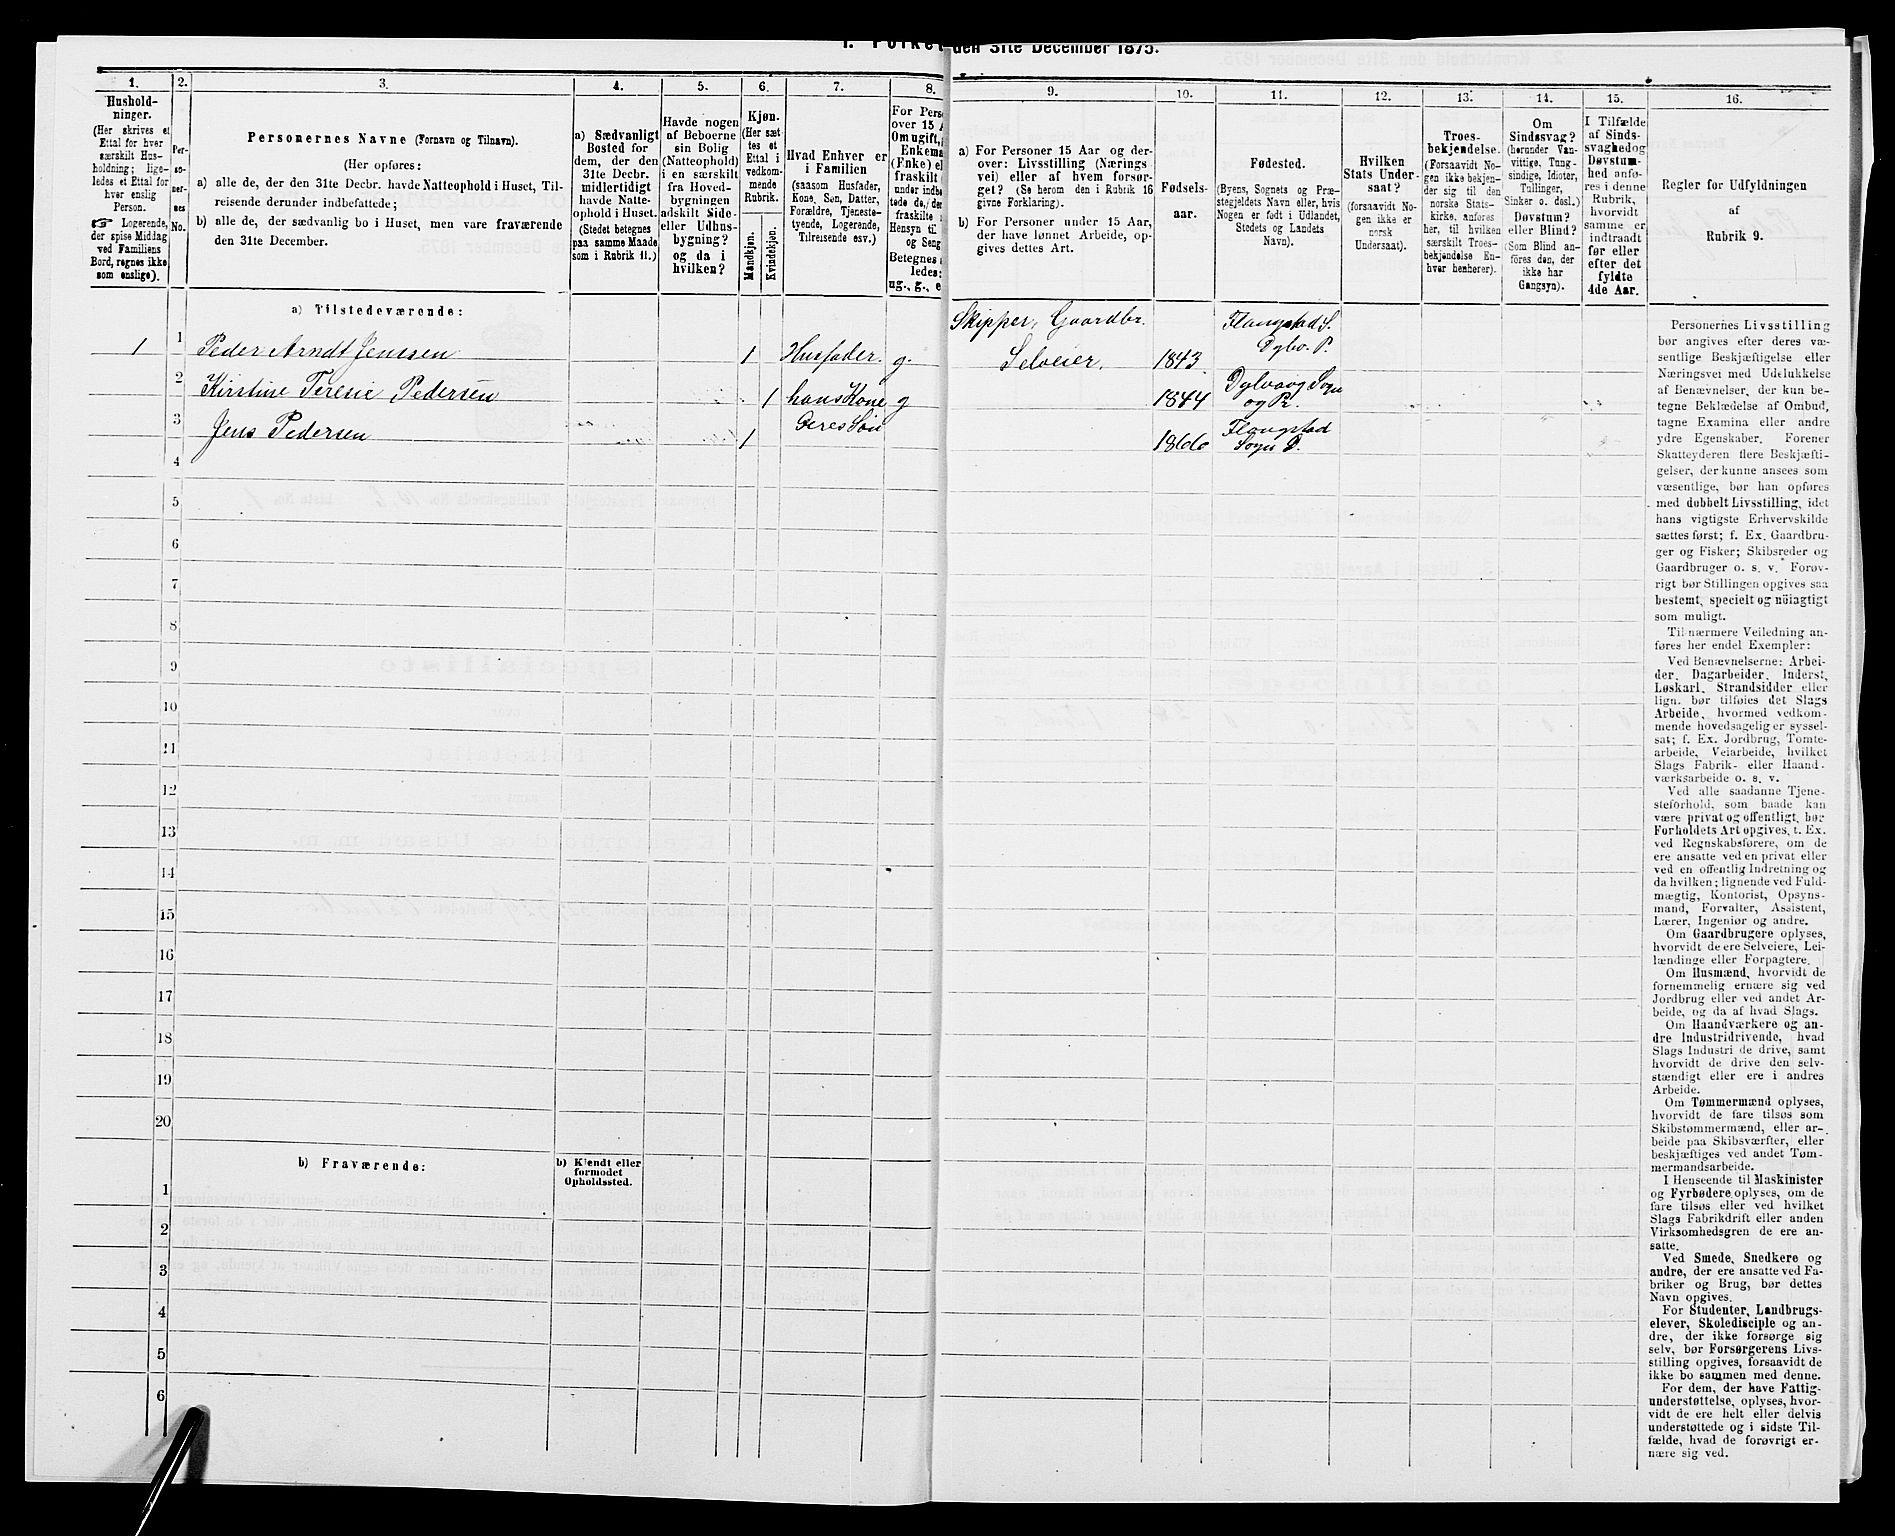 1. Folket den 31te December 1875.
1.
Hushold-
ninger.
(Her skrives et
Ettal for hver
særskilt Hus-
holdning; lige-
ledes et Ettal for
hver enslig
Person.
Logerende,
der spise Middag
ved Familiens
Bord, regnes ikke
som enslige).
2.
Per-
so-
ner-
nes
No.
3.
Personernes Navne (Fornavn og Tilnavn).
(Her opføres:
a) alle de, der den 31te Decbr. havde Natteophold i Huset, Til-
reisende derunder indbefattede;
b) alle de, der sædvanlig bo i Huset, men vare fraværende
den 31te December.
4.
a) Sædvanligt
Bosted for
dem, der den
31te Decbr.
midlertidigt
havde Natte-
ophold i Huset.
(Stedet betegnes
paa samme Maade
som i Rubrik 11.)
5.
Havde nogen
af Beboerne
sin Bolig
(Natteophold)
i en særskilt
fra Hoved-
bygningen
adskilt Side-
eller Udhus-
bygning?
og da i
hvilken?
6.
Kjøn.
(Her sæt-
tes et
Ettal i
vedkom-
mende
Rubrik.
Mandkjøn.
Kvindekjøn.
7.
Hvad Enhver er
i Familien
(saasom Husfader,
Kone, Søn, Datter,
Forældre, Tjeneste-
tyende, Logerende,
Tilreisende osv.)
8.
For Pers
over 15 A
Om ugift,
Enkema
(Fnke) el
fraskilt
under indbe
tede de, der
fraskilte
Hensyn til
og Seng
Betegnes
ledes:
ug., g., e
9.
a) For Personer 15 Aar og der-
over: Livsstilling (Nærings-
vei) eller af hvem forsør-
get? (Se herom den i Rubrik 16
givne Forklaring).
b) For Personer under 15 Aar,
der have lønnet Arbeide, op-
gives dettes Art.
10.
Fødsels-
aar.
11.
Fødested.
(Byens, Sognets og Præ-
stegjeldets Navn eller, hvis
Nogen er født i Udlandet,
Stedets og Landets
Navn).
12.
Hvilken
Stats Under-
saat?
(forsaavidt No-
gen ikke er
norsk
Undersaat).
13.
Troes-
bekjendelse.
(Forsaavidt No-
gen ikke bekjen-
der sig til den
norske Stats-
kirke, anføres
her, til hvilken
særskilt Troes-
bekjendelse En-
hver henhører).
14.
Om
Sindssvag?
(herunder Van-
vittige, Tung-
sindige, Idioter,
Tullinger,
Sinker o. desl.)
Døvstum?
eller Blind?
(Som Blind an-
føres den, der
ikke har
Gangsyn).
15.
I Tilfælde
af Sinds-
svaghed og
Døvstum-
hed anfø-
res i denne
Rubrik,
hvorvidt
samme er
indtraadt
før eller
efter det
fyldte
4de Aar.
16.
Regler før Udfyldningen
af
Rubrik 9.
a) Tilstedeværende:
1 1 Peder Arndt Jenssen 1 Husfader. g. Skipper, Gaardbr. Selveier. 1843. Flaugstad S. Dybv. P.
2 Kirstine Teresie Pedersen 1 hans Kone g 1844 Dybvaag Sogn og Pr.
3 Jens Pedersen 1 Deres Søn 1866 Flaugstad Sogn D.
4
5
6
7
8
9
10
11
12
13
14
15
16
17
18
19
20
b) Fraværende:
b) Kjendt eller
formodet
Opholdssted.
1
2
3
4
5
6
Personernes Livsstilling
bør angives efter deres væ-
sentlige Beskjæftigelse eller
Næringsvei med Udelukkelse
af Benævnelser, der kun be-
tegne Beklædelse af Ombud,
tagne Examina eller andre
ydre Egenskaber. Forener
Skatteyderen flere Beskjæfti-
gelser, der kunne ansees som
væsentlige, bør han opføres
med dobbelt Livsstilling, idet
hans vigtigste Erhvervskilde
sættes først; f. Ex. Gaardbru-
ger og Fisker; Skibsreder og
Gaardbruger o. s. v. Forøv-
rigt bør Stillingen opgives saa
bestemt, specielt og nöiagtigt
som muligt.
Til nærmere Veiledning an-
føres her endel Exempler:
Ved Benævnelserne: Arbei-
der, Dagarbeider, Inderst,
Løskarl, Strandsidder eller
lign. bør tilføies det Slags
Arbeide, hvormed vedkom-
mende hovedsagelig er syssel-
sat; f. Ex. Jordbrug, Tomte-
arbeide, Veiarbeide, hvilket
Slags Fabrik- eller Haand-
værksarbeide o. s. v.
Ved alle saadanne Tjene-
steforhold, som baade kan
være privat og offentligt, bør
Forholdets Art opgives, t. Ex.
ved Regnskabsførere, om de
ere ansatte ved en privat eller
ved en offentlig Indretning og
da hvilken; lignende ved Fuld-
mægtig, Kontorist, Opsyns-
mand, Forvalter, Assistent,
Lærer, Ingeniør og andre.
Om Gaardbrugere oplyses,
hvorvidt de ere Selveiere, Lei-
lændinge eller Forpagtere.
Om Husmænd, hvorvidt de
fornemmelig ernære sig ved
Jordbrug eller ved andet Ar-
beide, og da af hvad Slags.
Om Haandværkere og an-
dre Industridrivende, hvad
Slags Industri de drive, samt
hvorvidt de drive den selv-
stændigt eller ere i andres
Arbeide.
Om Tømmermænd oplyses,
hvorvidt de fare tilsøs som
Skibstømmermænd, eller ar-
beide paa Skibsværfter, eller
beskjæftiges ved andet Tøm-
mermandsarbeide.
I Henseende til Maskinister
og Fyrbødere oplyses, om de
fare tilsøs eller ved hvilket
Slags Fabrikdrift eller anden
Virksomhedsgren de ere an-
satte.
Ved Smede, Snedkere og
andre, der ere ansatte ved Fa-
briker og Brug, bør dettes
Navn opgives.
For Studenter, Landbrugs-
elever, Skoledisciple og an-
dre, der ikke forsørge sig
selv, bør Forsørgerens Livs-
stilling opgives, forsaavidt de
ikke bo sammen med denne.
For dem, der have Fattig-
understøttelse, oplyses, hvor-
vidt de ere helt eller delvis
understøttede og i sidste Til-
fælde, hvad de forøvrigt er-
nære sig ved.